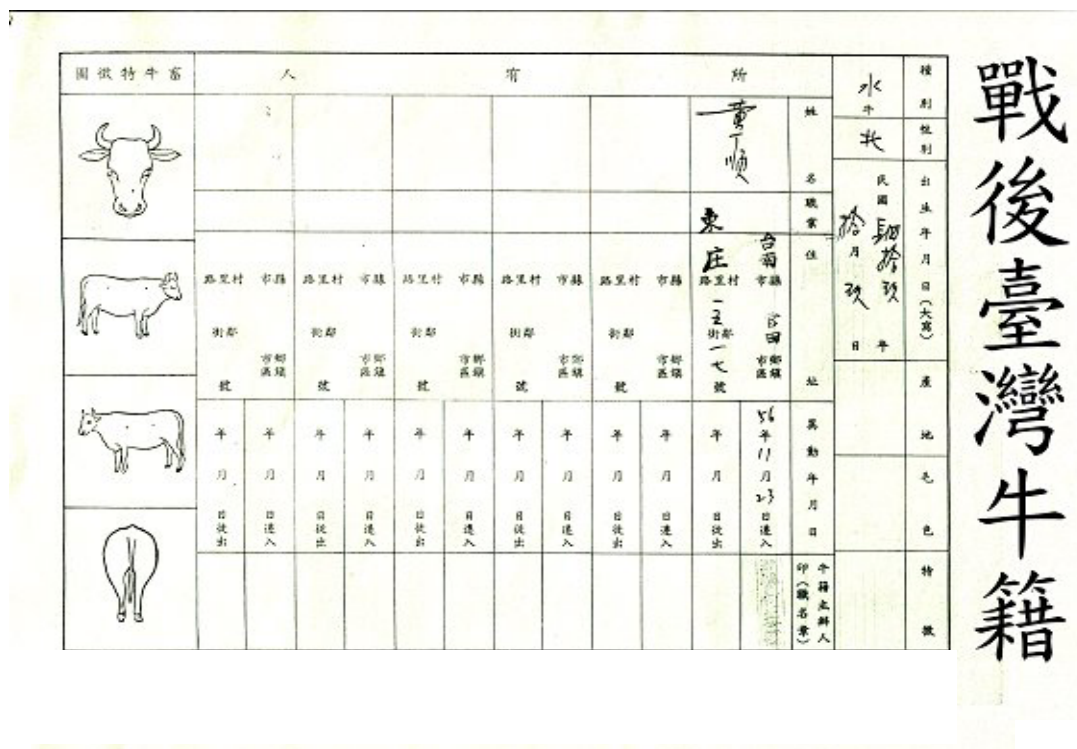 戰後臺灣牛籍
種別
水牛
性別
牝
出生年月日(大寫)
民國
年
拾月
日
產地
毛色
特徵
所有人
姓名
黃丁順
職業
住址
台南縣市
官田鄉鎮市區
東庄村里路
鄰街
一七號
縣市
鄉鎮市區
村里路
鄰街
號
縣市
鄉鎮市區
村里路
鄰街
號
縣市
鄉鎮市區
村里路
鄰街
號
縣市
鄉鎮市區
村里路
鄰街
號
縣市
鄉鎮市區
村里路
鄰街
號
異動年月日
56年11月23日遷入
年月日徙出
年月日遷入
年月日徙出
年月日遷入
年月日徙出
年月日遷入
年月日徙出
年月日遷入
年月日徙出
年月日遷入
年月日徙出
牛籍主辦人印(職名章)
畜牛特徵圖